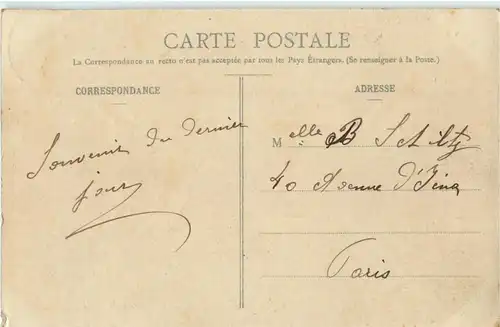 CARTE POSTALE
La Correspondance au recto n'est pas acceptée par tous les Pays Étrangers. (Se renseigner à la Poste.)
CORRESPONDANCE
ADRESSE
Souvenir du dernier
jour
Melle B Schiltz
40 Avenue d'Iéna
Paris